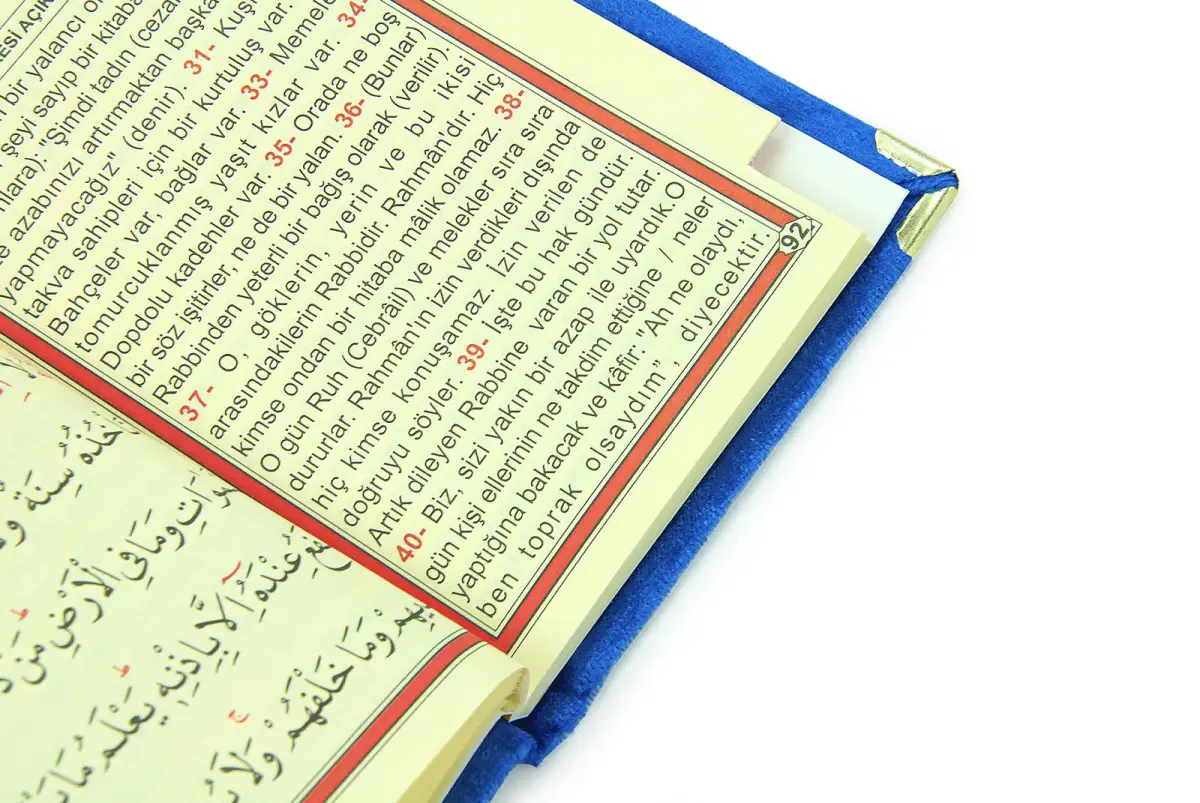 ESİ AÇIK
bir yalancı o
şeyi sayıp bir kitaba
nlara): "Şimdi tadın (ceza
e azabınızı artırmaktan başka
yapmayacağız" (denir). 31- Kuş
takva sahipleri için bir kurtuluş var.
Bahçeler var, bağlar var. 33- Memele
tomurcuklanmış yaşıt kızlar var. 34-
Dopdolu kadehler var. 35- Orada ne boş
bir söz işitirler, ne de bir yalan. 36- (Bunlar)
Rabbinden yeterli bir bağış olarak (verilir).
37- O, göklerin, yerin ve bu ikisi
arasındakilerin Rabbidir. Rahmân'dır. Hiç
kimse ondan bir hitaba mâlik olamaz. 38-
O gün Ruh (Cebrâil) ve melekler sıra sıra
dururlar. Rahmân'ın izin verdikleri dışında
hiç kimse konuşamaz. İzin verilen de
doğruyu söyler. 39- İşte bu hak gündür.
Artık dileyen Rabbine varan bir yol tutar.
40- Biz, sizi yakın bir azap ile uyardık.O
gün kişi ellerinin ne takdim ettiğine / neler
yaptığına bakacak ve kâfir: "Ah ne olaydı,
ben toprak olsaydım", diyecektir.
92
خُذُهُ سِنَةٌ وَ
وَاتِ وَمَا فِي الْاَرْضِ مَنْ
عِنْدَهُٓ اِلَّا بِاِذْنِه۪ يَعْلَمُ مَا
وَمَا خَلْفَهُمْ وَلَا